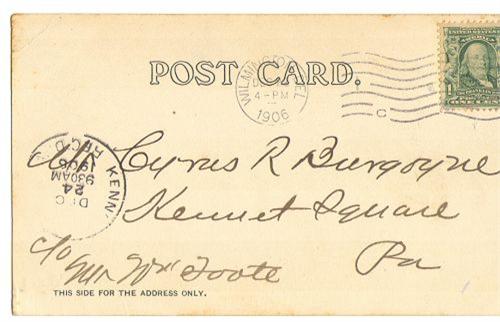 POST CARD.
WILMINGTON, DEL
4-PM
1906
C
UNITED STATES OF AMERICA
FRANKLIN
1
ONE CENT
KENN
REC'D.
DEC
24
930AM
1906
Cyrus R Burgoyne
Kennet Square
Pa
c/o
Mr Wm Foote
THIS SIDE FOR THE ADDRESS ONLY.